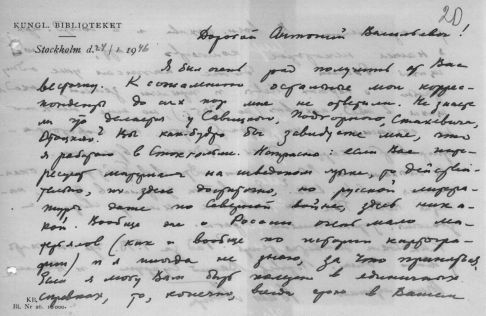 20
KUNGL. BIBLIOTEKET
Stockholm d. 24/1 1946
Дорогой Антоний Васильевич!
Я был очень рад получить от Вас
весточку. К сожалению остальные мои корреспонденты
до сих пор мне не ответили. Не знаете
ли что делается у Савицкого, Подгорного, Стахевича,
Вы как-будто бы завидуете мне, что
я работаю в Стокгольме. Напрасно: если Вас интересует
материал на шведском языке, то действительно,
его здесь достаточно, но русской литературы
даже по Северной войне, здесь никакой.
Вообще о России очень мало материалов
(как и вообще по истории картографии)
и я иногда не знаю, за что приняться.
Если я могу Вам быть полезен в единичных
справках, то, конечно, всегда буду в Вашем
KB.
Bl. Nr 26. 10000.